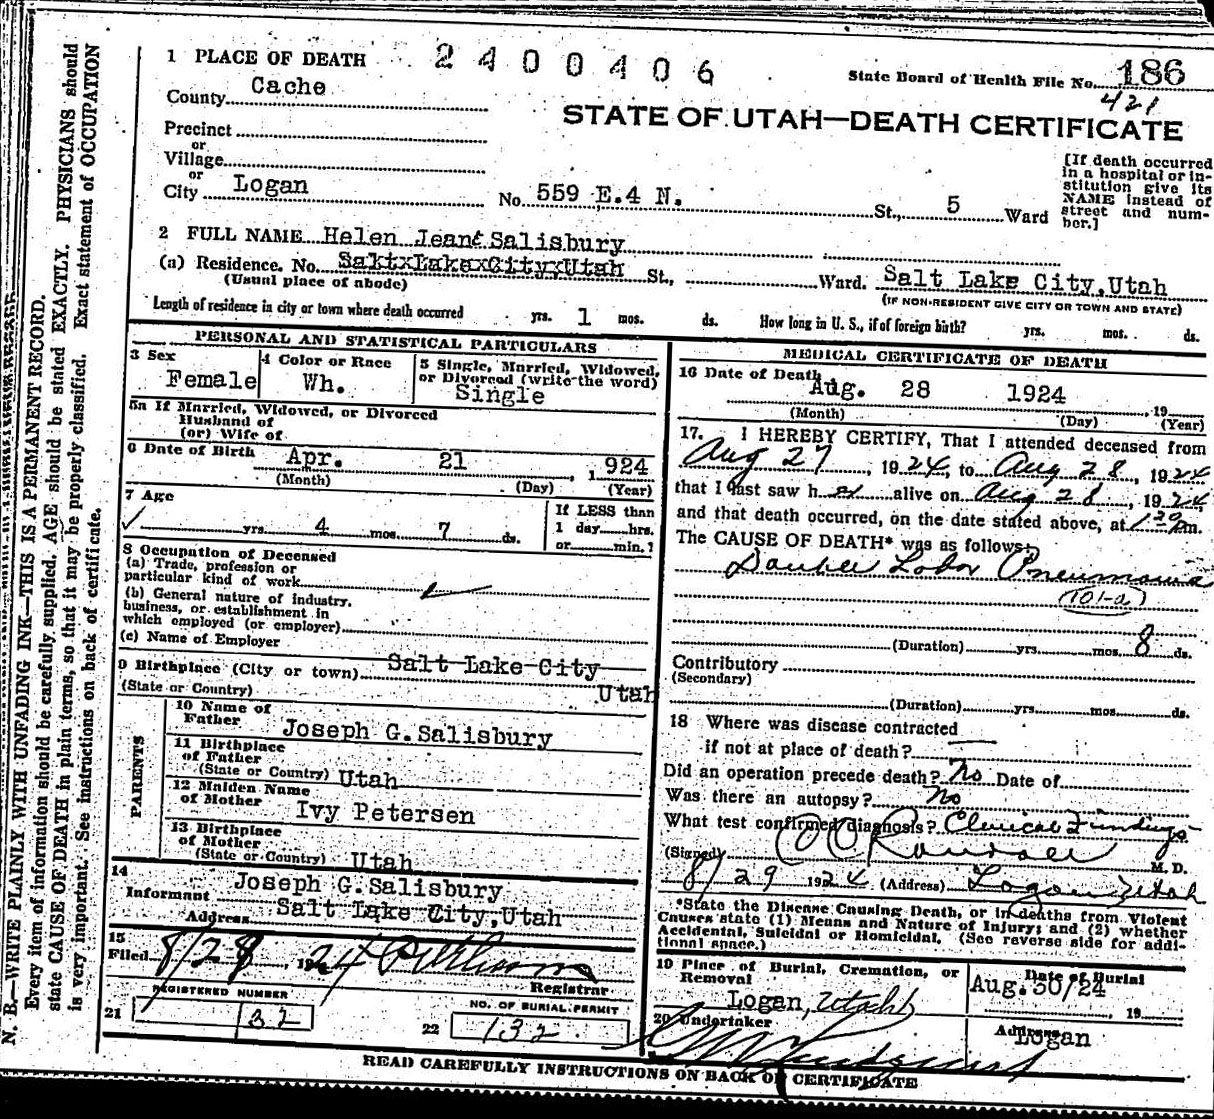 1 PLACE OF DEATH 2400406
State Board of Health File No. 186
421
County Cache
STATE OF UTAH—DEATH CERTIFICATE
Precinct
or
Village
or
City Logan No. 559 E.4 N. St., 5 Ward
[If death occurred
in a hospital or in-
stitution give its
NAME instead of
street and num-
ber.]
2 FULL NAME Helen Jean Salisbury
(a) Residence. No. Salt Lake City, Utah St., Ward. Salt Lake City, Utah
(Usual place of abode) (IF NON-RESIDENT GIVE CITY OR TOWN AND STATE)
Length of residence in city or town where death occurred yrs. 1 mos. ds. How long in U. S., if of foreign birth? yrs. mos. ds.
PERSONAL AND STATISTICAL PARTICULARS
3 Sex
Female
4 Color or Race
Wh.
5 Single, Married, Widowed,
or Divorced (write the word)
Single
5a If Married, Widowed, or Divorced
Husband of
(or) Wife of
6 Date of Birth Apr. 21, 1924
(Month) (Day) (Year)
7 Age
yrs. 4 mos. 7 ds.
If LESS than
1 day hrs.
or min.?
8 Occupation of Deceased
(a) Trade, profession or
particular kind of work
(b) General nature of industry,
business, or establishment in
which employed (or employer)
(c) Name of Employer
9 Birthplace (City or town) Salt Lake City
(State or Country) Utah
PARENTS
10 Name of
Father Joseph G. Salisbury
11 Birthplace
of Father
(State or Country) Utah
12 Maiden Name
of Mother Ivy Petersen
13 Birthplace
of Mother
(State or Country) Utah
14
Informant Joseph G. Salisbury
Address Salt Lake City, Utah
15
Filed 8/28, 1924
Registrar
REGISTERED NUMBER
21 32
NO. OF BURIAL PERMIT
22 132
MEDICAL CERTIFICATE OF DEATH
16 Date of Death Aug. 28 1924, 19
(Month) (Day) (Year)
17. I HEREBY CERTIFY, That I attended deceased from
Aug 27, 1924, to Aug 28, 1924
that I last saw her alive on Aug 28, 1924,
and that death occurred, on the date stated above, at 1 30 m.
The CAUSE OF DEATH* was as follows:
Double Lobar Pneumonia
(101-a)
(Duration) yrs. mos. 8 ds.
Contributory
(Secondary)
(Duration) yrs. mos. ds.
18 Where was disease contracted
if not at place of death?
Did an operation precede death? No Date of
Was there an autopsy? No
What test confirmed diagnosis? Clinical Findings
(Signed) Randall M. D.
8/29 1924 (Address) Logan Utah
*State the Disease Causing Death, or in deaths from Violent
Causes state (1) Means and Nature of Injury; and (2) whether
Accidental, Suicidal or Homicidal. (See reverse side for addi-
tional space.)
19 Place of Burial, Cremation, or
Removal
Logan, Utah
Date of Burial
Aug. 30/24, 19
20 Undertaker
Address
Logan
READ CAREFULLY INSTRUCTIONS ON BACK OF CERTIFICATE
N. B.—WRITE PLAINLY WITH UNFADING INK—THIS IS A PERMANENT RECORD.
Every item of information should be carefully supplied. AGE should be stated EXACTLY. PHYSICIANS should
state CAUSE OF DEATH in plain terms, so that it may be properly classified. Exact statement of OCCUPATION
is very important. See instructions on back of certificate.